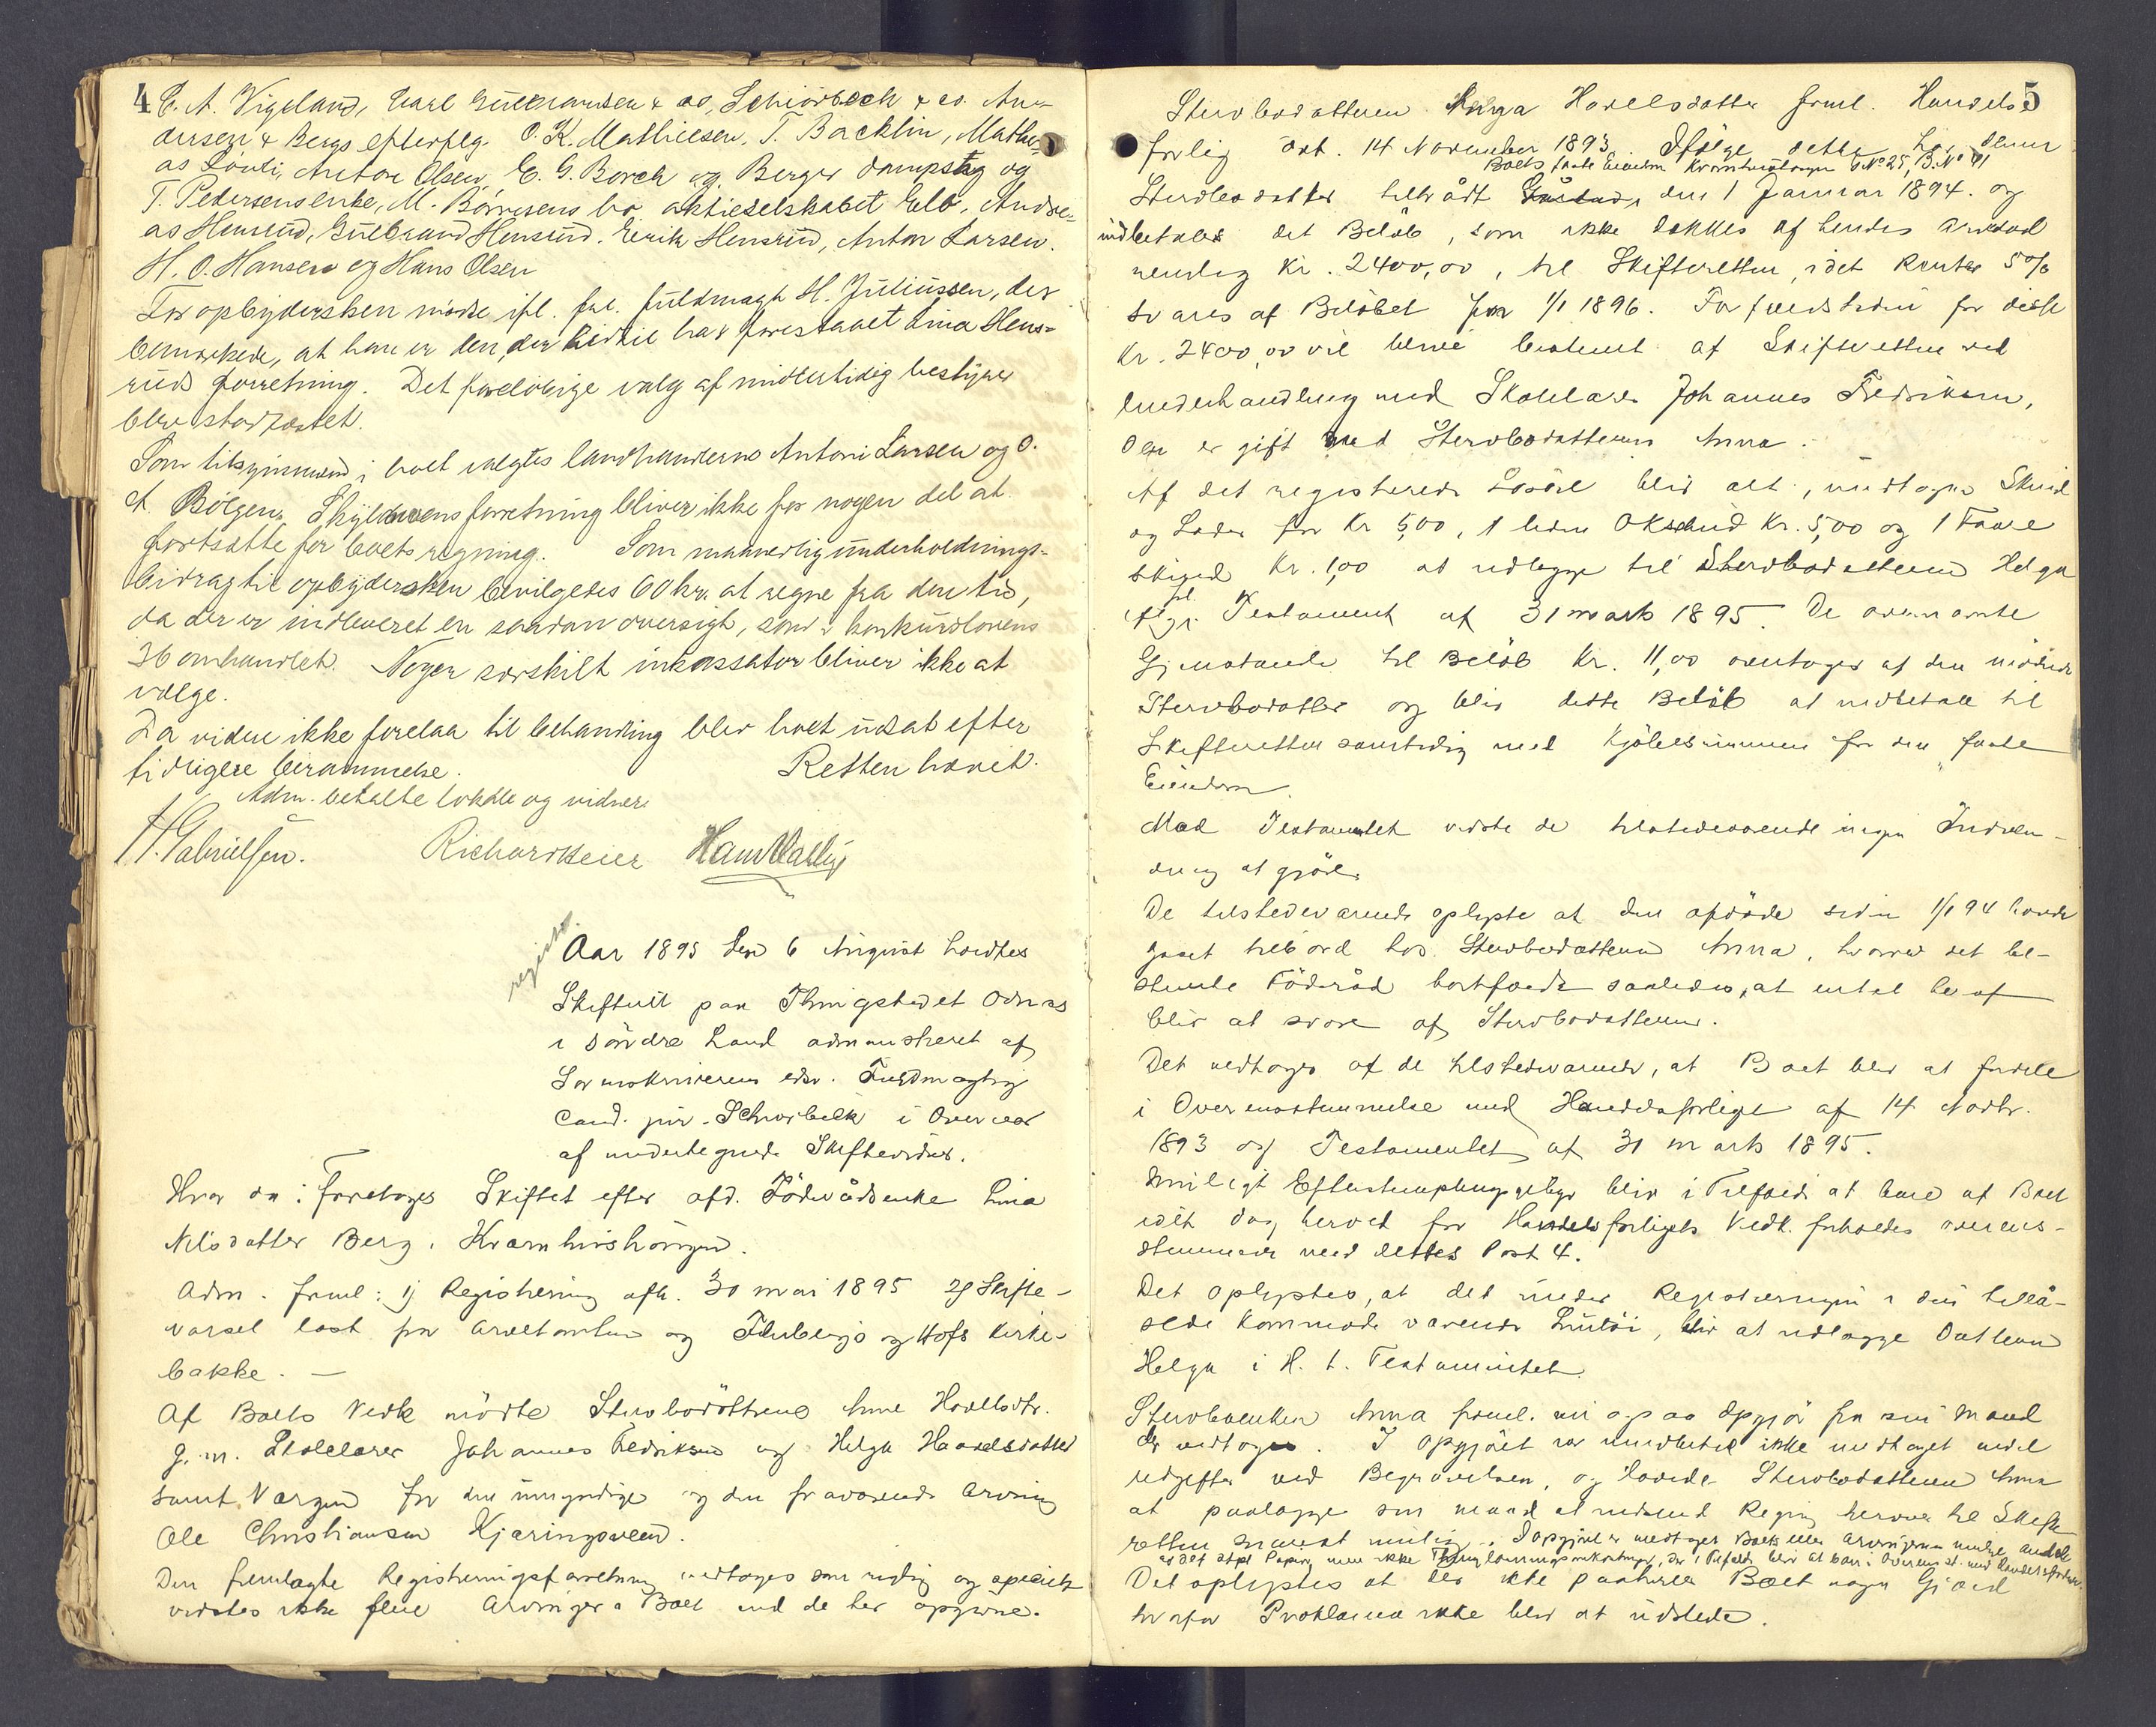 4
C. A. Vigeland, Carl Gulbransen & co, Schiørbeck & co. An-
dersen & Bergs efterflg. O. K. Mathiesen, T. Bäcklin, Mathi-
as Anton Olsen, C. G. Borch og Berger dampsag og
T. Pedersens enke, M. Børresens bo, aktieselskabet Elb, Andre-
as Hensrud, Gulbrand Hensrud, Erik Hensrud, Anton Larsen.
H. O. Hansen og Hans Olsen
For opbydersken mødte ifl. ful. fuldmægt H. Juliussen, der
bemærkede, at han er den, der hidtil har forestaaet Lina Hens-
ruds forretning. Det foreløbige valg af midlertidig bestyrer
blev stadfæstet.
Som tilsynsmænd i boet valgtes landhandlerne Anton Larsen og O.
A. Bølgen. Skyldnerens forretning bliver ikke for nogen del at
fortsætte for boets regning. Som maanedlig underholdnings-
bidrag til opbydersken bevilgedes 60 kr. at regne fra den tid,
da der er indleveret en saadan oversigt, som i konkurslovens
36 omhandlet. Nogen særskilt inkassator bliver ikke at
vælge.
Da videre ikke forelaa til behandling blev boet udsat efter
tidligere berammelse. Retten hævet.
Adm. betalte lokale og vidner.
H. Gabrielsen. Richard Beier Hans
registr.
Aar 1895 den 6 August holdtes
Skifteret paa Thingstedet Odnæs
i Søndre Land administreret af
Sorenskriverens edsv. Fuldmægtig
cand. jur. Schiørbeck i Overvær
af undertegnede Skiftevidner.
Hvor da: Foretoges Skiftet efter afd. Føderådsenke Lina
Nilsdatter Berg, Kværnhushaugen.
Adm. freml: 1) Registrering afh. 30 mai 1895 2) Skifte-
varsel læst for arvetomten og Fluberg og Hofs Kirke-
bakke. —
Af Boets Vedk mødte Stervbodøttrene Anne Hovelsdtr.
g. m. Skolelærer Johannes Fedriksen og Helga Haavelsdatter
samt Værgen for den umyndige og den fraværende Arving
Ole Christiansen Kjæringsveen.
Den fremlagte Registreringsforretning vedtoges som rigtig og specielt
vidstes ikke flere Arvinger i Boet end de her opgivne.
5
Stervbodatteren Helga Hovelsdatter freml. Handels
forlig dat. 14 November 1893. Ifølge dette har denne
Boets faste Eiendom Kværnhushaugen G No 25, B. No 41
Stervbodatter tiltrådt den 1 Januar 1894. og
indbetales det Beløb, som ikke dækkes af hendes arvelod
nemlig Kr. 2400,00, til Skifteretten, idet Renter 5%
svares af Beløbet fra 1/1 1896. Forfaldstiden for disse
Kr. 2400,00 vil blive bestemt af Skifteretten ved
Underhandling med Skolelærer Johannes Fedriksen,
der er gift med Stervbodatteren Anna.
Af det registrerede Løsøre blir alt, undtagen Skrud
og Lader for Kr 5,00, 1 liden Oksehud Kr. 5,00 og 1 Faare
skind Kr. 1,00 at udlegge til Stervbodatteren Helga
ifl. Testament af 31 marts 1895. De ovennævnte
Gjenstande til Beløb Kr. 11,00 overtages af den mødende
Stervbodatter og blir dette Beløb at indbetale til
Skifteretten samtidig med Kjøbesummen for den faste
Eiendom.
Mod Testamentet vidste de tilstedeværende ingen Indven-
ding at gjøre.
De tilstedeværende oplyste at den afdøde siden 1/1 94 havde
gaaet tilbords hos Stervbodatteren Anna, hvorved det be-
stemte Føderåd bortfaldt saaledes, at intet heraf
blir at svare af Stervbodatteren.
Det vedtoges af de tilstedeværende, at Boet blir at fordele
i Overensstemmelse med Handelsforliget af 14 Novbr.
1893 og Testamentet af 31 marts 1895.
Muligt Efterstemplingsgebyr blir i Tilfælde at bære af Boet
idet dog herved for Handelsforligets Vedk. forholdes overens-
stemmende med dettes Post 4.
Det oplystes, at det under Registreringen i den tillå-
sede Kommode værende Lintøi, blir at udlægge Datteren
Helga i H. t. Testamentet.
Stervboenken Anna freml. Opgjør fra sin Mand
der vedtoges. I Opgjøret var imidlertid ikke medtaget endel
udgifter ved Begravelsen, og lovede Stervbodatteren Anna
at paalægge sin mand at indsend Regning herover til Skifte-
retten snarest mulig. I opgjøret er medtaget Boets eller
Det oplystes at der ikke paahviler Boet nogen Gjæld
hvorfor Proklama ikke blir at udstede.